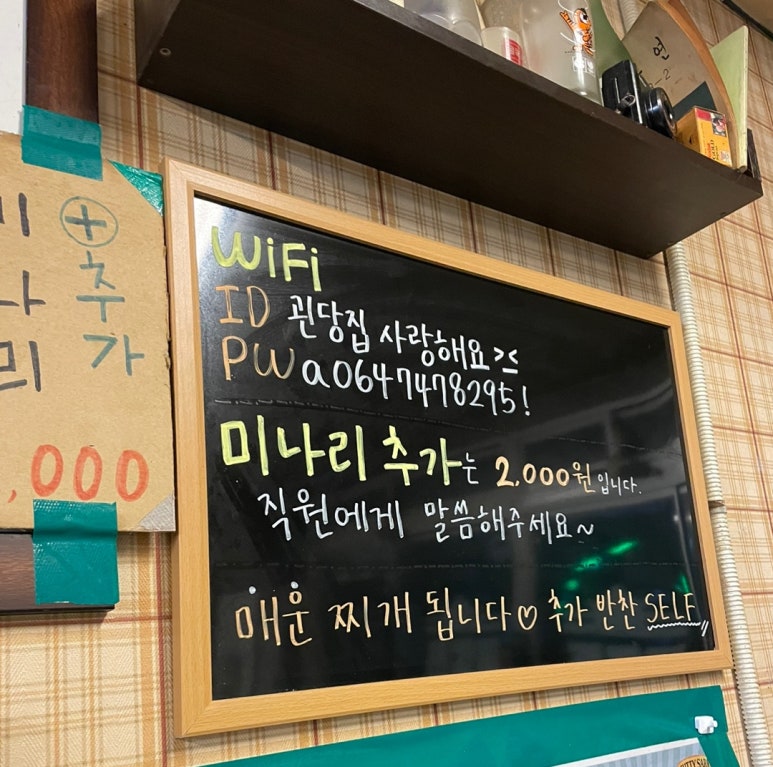 ⊕
추
나
가
리
,000
WiFi
ID 괸당집 사랑해요 ><
PW a0647478295!
미나리 추가는 2,000원입니다.
직원에게 말씀해주세요~
매운 찌개 됩니다♡ 추가 반찬 SELF
연